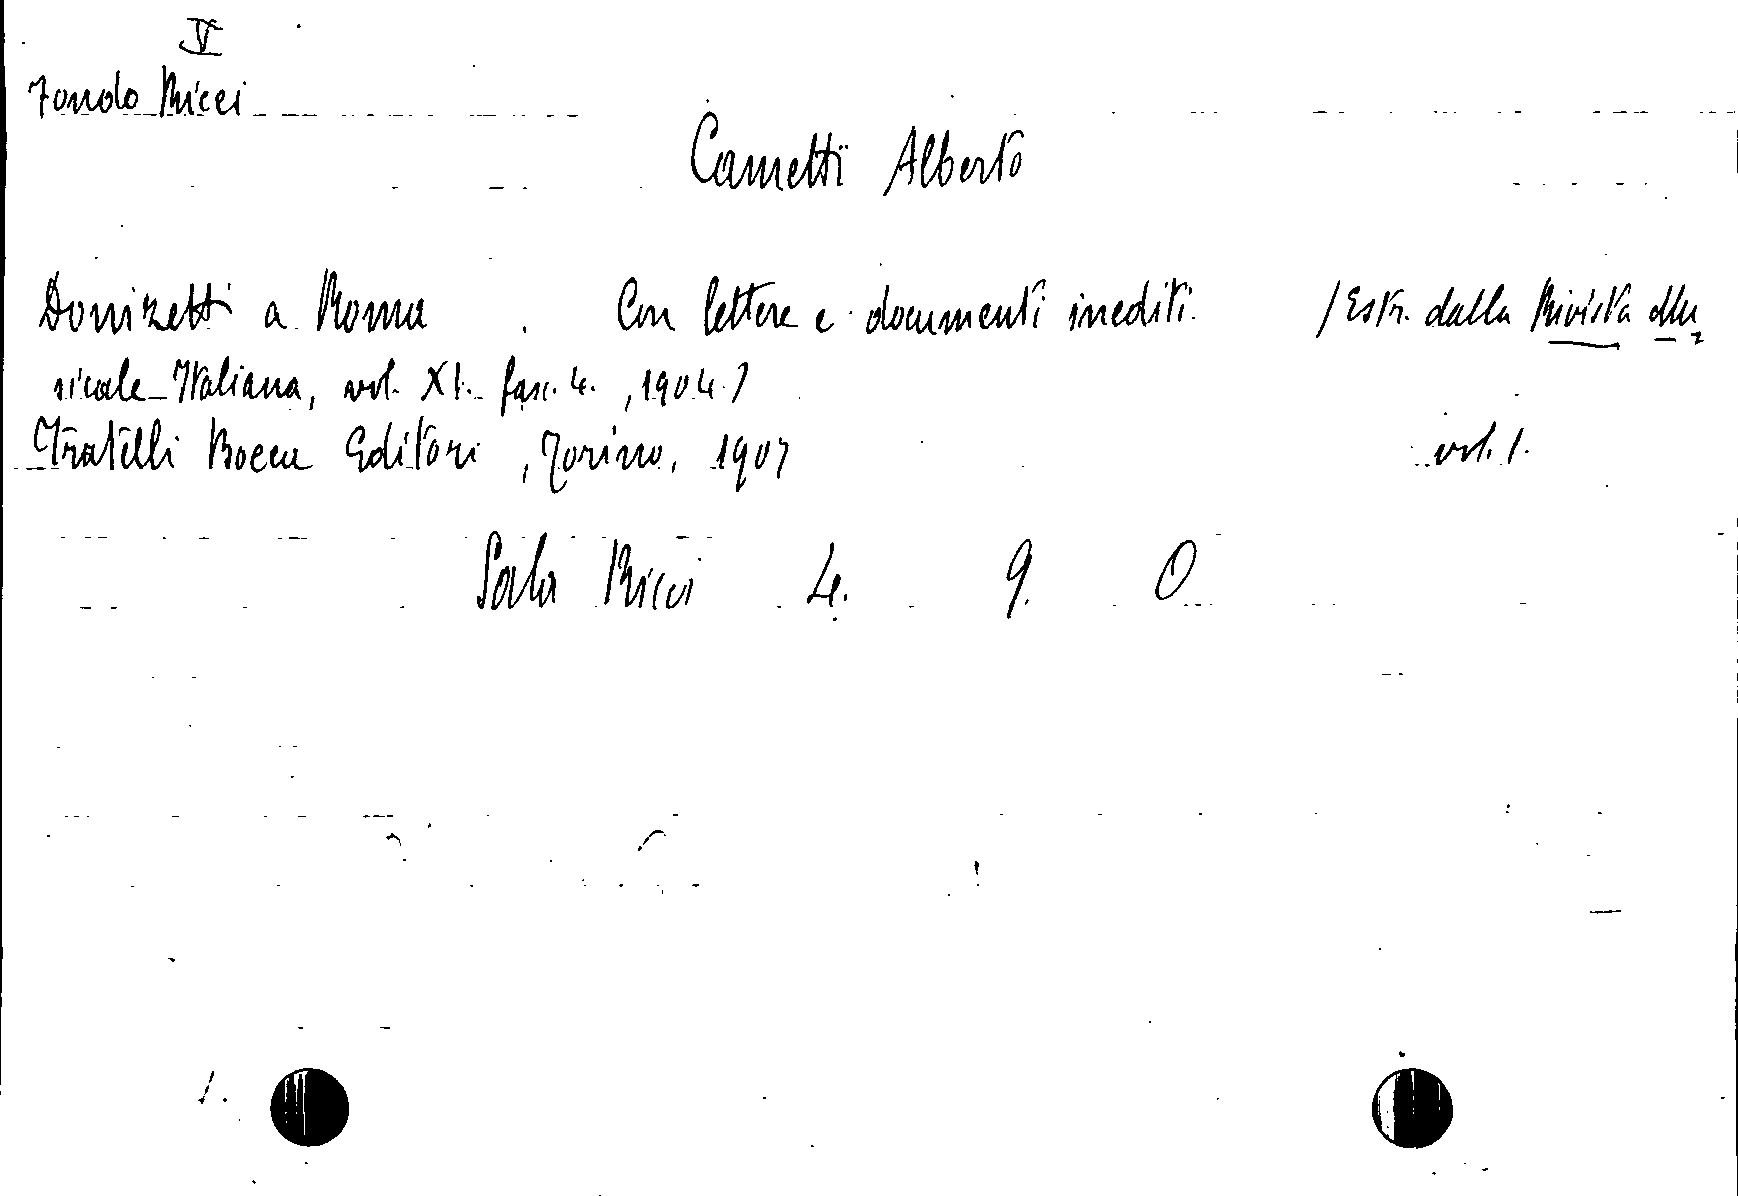 V
Fondo Ricci
Cametti Alberto
Donizetti a Roma . Con lettere e documenti inediti. /Estr. dalla Rivista Mu
sicale Italiana, vol. XI. fasc. 4. , 1904 /
Fratelli Bocca Editori , Torino, 1907 vol. 1.
Sala Ricci 4. 9. 0
1.